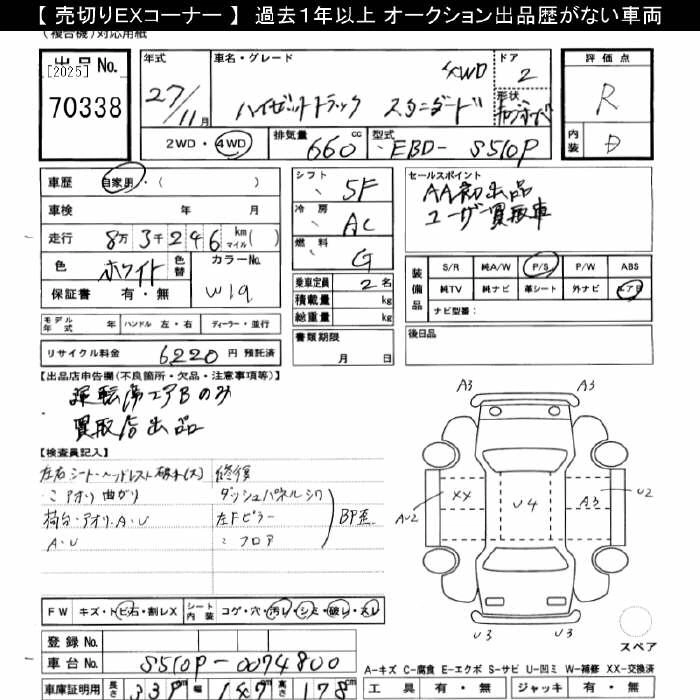 【 売切りEXコーナー 】 過去1年以上 オークション出品歴がない車両
(複合機)対応用紙
出品 No.
[2025]
70338
年式
27/11月
車名・グレード
4WD
ハイゼットトラック スタンダード
ドア
2
形状
評価点
R
内装
D
2WD・4WD
排気量
660 cc
型式
EBD- S510P
車歴
自家用・( )
車検 年 月
走行 8万3千246 km マイル( )
色
ホワイト
色替
カラーNo.
W19
保証書 有・無
モデル年式 年
ハンドル 左・右
ディーラー・並行
リサイクル料金 6220 円 預託済
シフト
5F
冷房
AC
燃料
G
乗車定員 2名
積載量 kg
総重量 kg
書類期限
月 日
セールスポイント
AA初出品
ユーザー買取車
装備品
S/R 純A/W P/S P/W ABS
純TV 純ナビ 革シート 外ナビ エアB
ナビ型番:
後日品
【出品店申告欄(不良箇所・欠品・注意事項等)】
運転席エアBのみ
買取店出品
【検査員記入】
左右シート・ヘッドレスト破れ(大)
〃アオリ曲がり
荷台・アオリ・A・U
A・U
修復
ダッシュパネルシワ
左Fピラー
〃フロア
BP歪
FW キズ・トビ石・割レX
シート内装 コゲ・穴・汚レ・シミ・破レ・スレ
登録 No.
車台 No. S510P-0074800
車庫証明用 長さ 339 cm 幅 147 cm 高さ 178 cm
A3
A3
XX
U4
A3
U2
AU2
U3
U3
スペア
A-キズ C-腐食 E-エクボ S-サビ U-凹ミ W-補修 XX-交換済
工具 有・無 ジャッキ 有・無